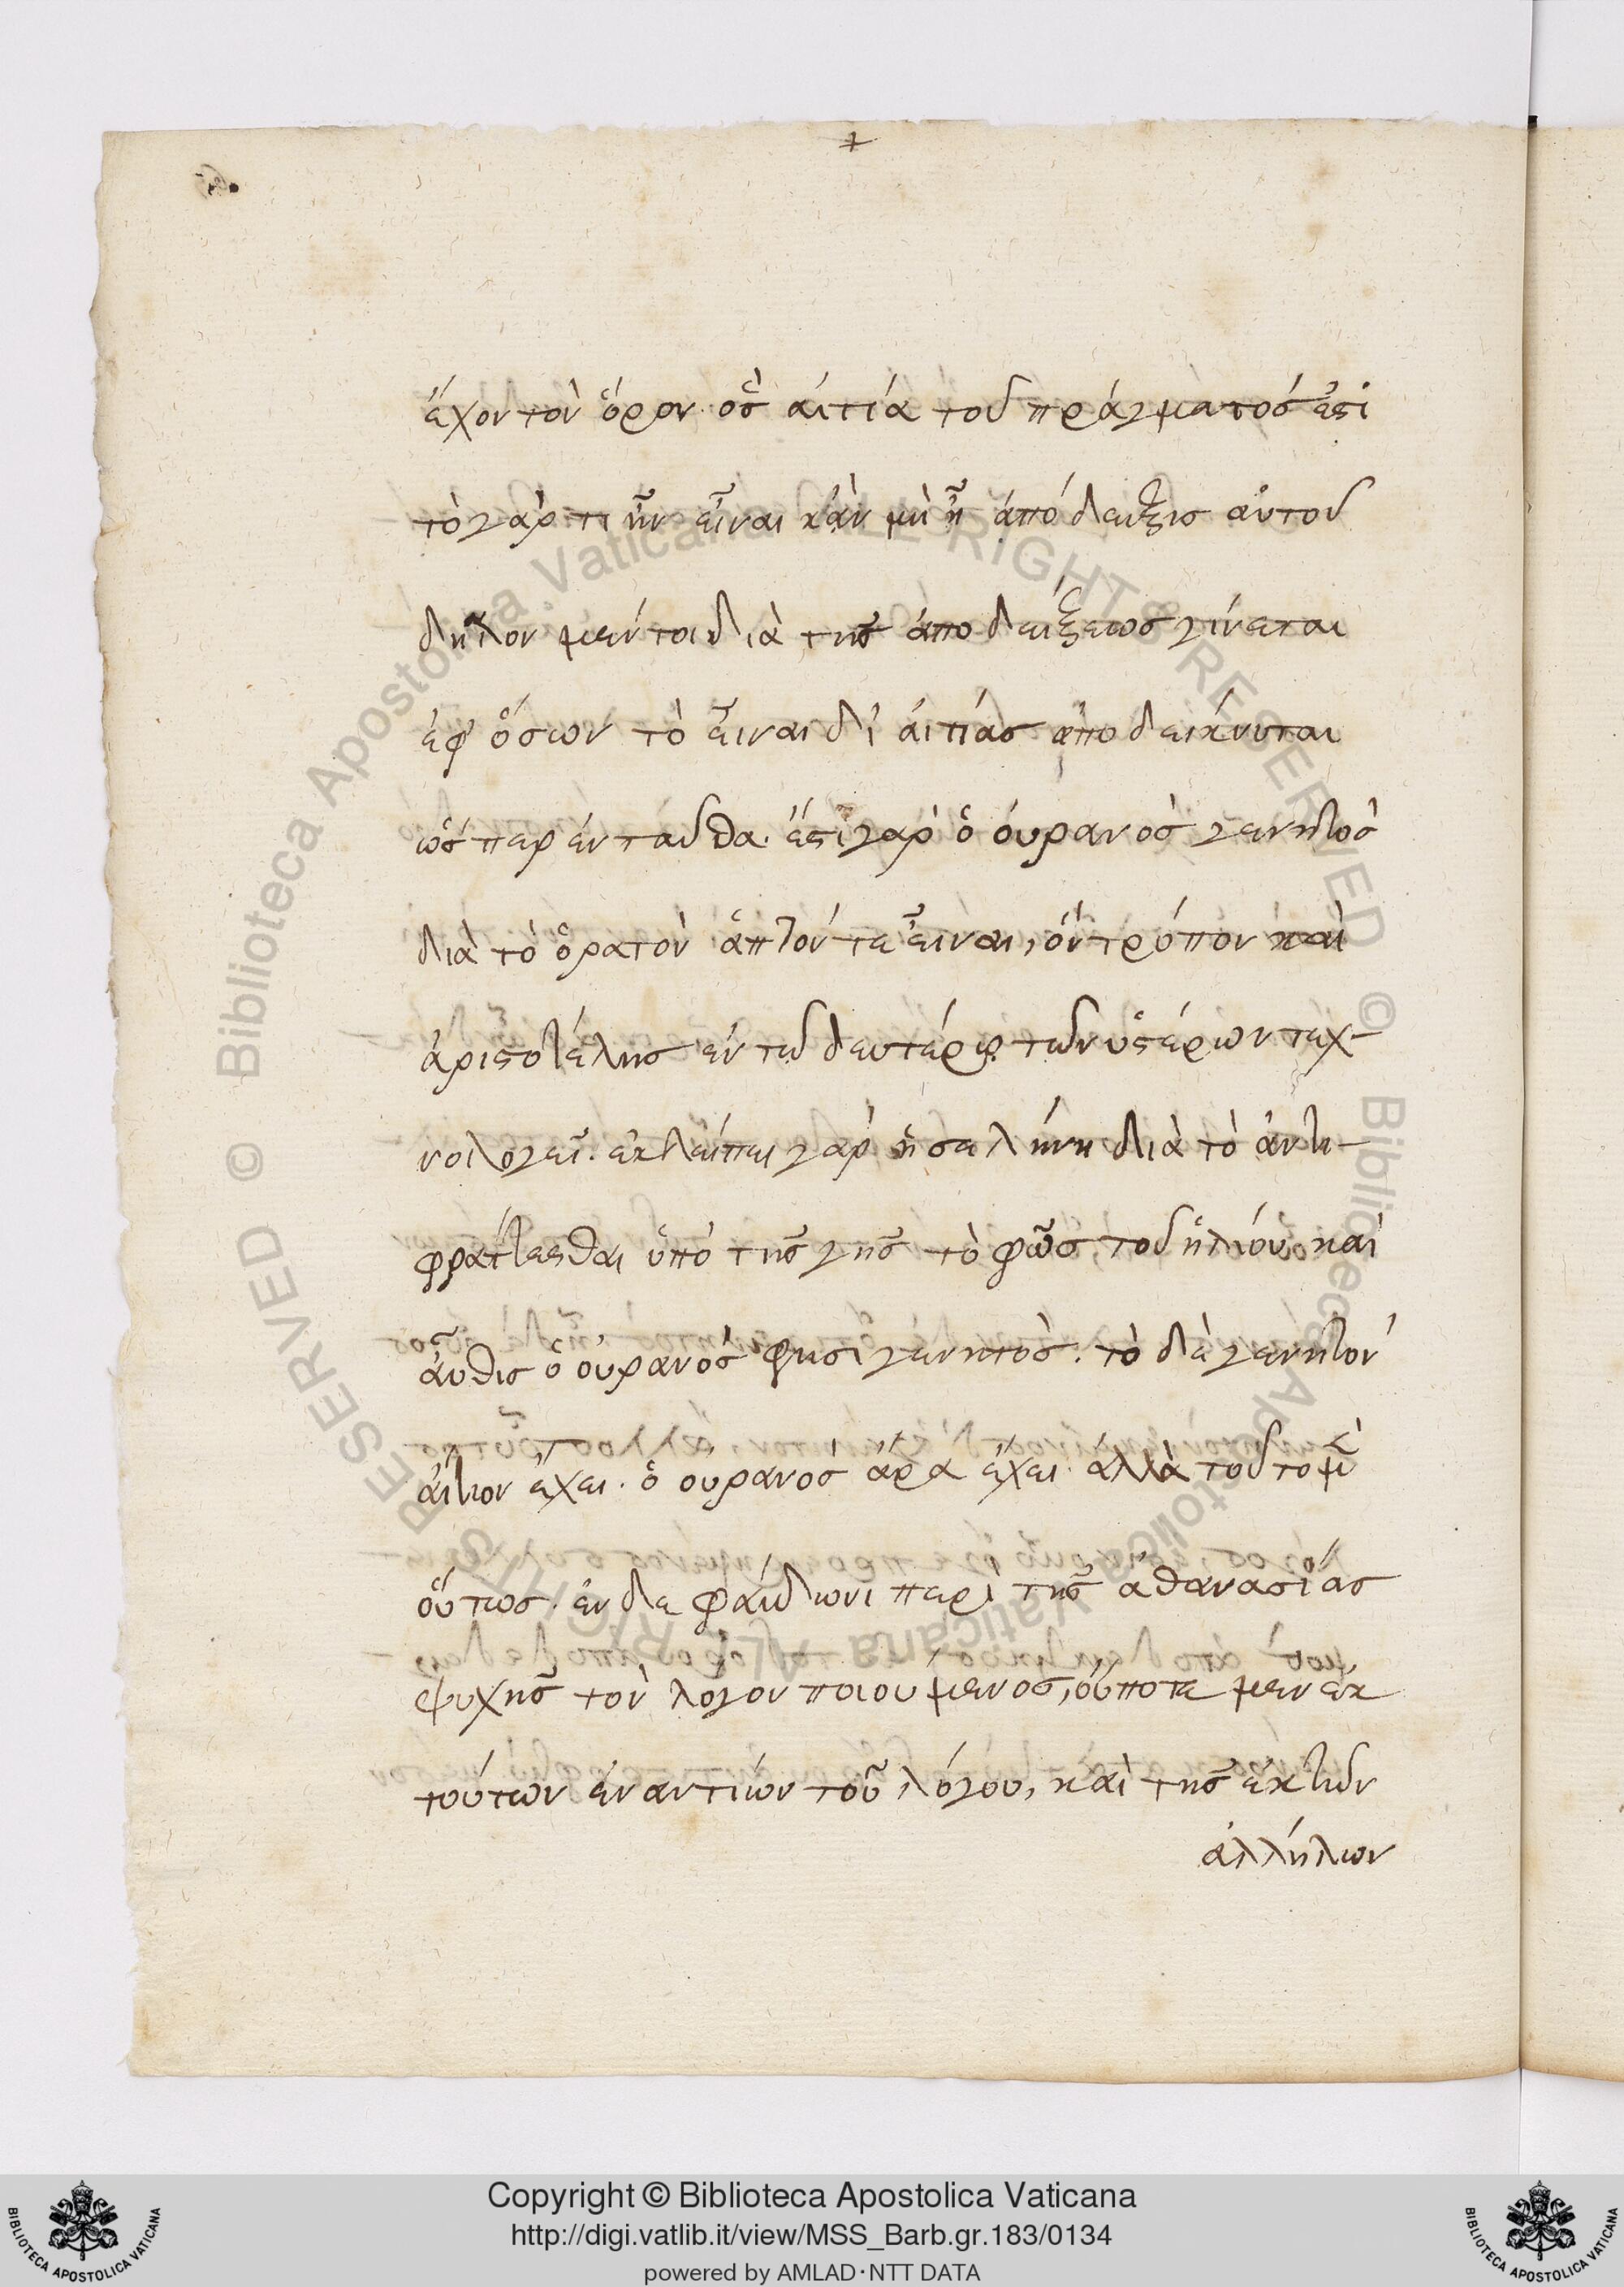 ἔχον τὸν ὅρον. ὃς αἰτία τοῦ πράγματός ἐστι
τὸ γὰρ τι ἦν εἶναι κἂν μὴ ᾖ ἀπόδειξις αὐτοῦ
δῆλον μέντοι διὰ τῆς ἀποδείξεως γίνεται
ἐφ' ὅσων τὸ εἶναι δι' αἰτίας ἀποδείκνυται
ὥσπερ ἐνταῦθα. ἔστι γὰρ ὁ οὐρανὸς γενητὸς
διὰ τὸ ὁρατὸν ἁπτόν τε εἶναι, ὃν τρόπον καὶ
ἀριστοτέλης ἐν τῷ δευτέρῳ τῶν ὑστέρων τεχ-
νολογεῖ. ἐκλείπει γὰρ ἡ σελήνη διὰ τὸ ἀντι-
φράττεσθαι ὑπὸ τῆς γῆς τὸ φῶς τοῦ ἡλίου καὶ
αὖθις ὁ οὐρανὸς φησὶ γενητὸς. τὸ δὲ γενητὸν
αἴτιον ἔχει. ὁ οὐρανὸς ἄρα ἔχει. ἀλλὰ τοῦτο μὲν
οὕτως. ἐν δὲ φαίδωνι περὶ τῆς ἀθανασίας
ψυχῆς τὸν λόγον ποιούμενος, οὔποτε μεν ἐκ
τούτων ἐναντίων τοῦ λόγου, καὶ τῆς ἐκ τῶν
ἀλλήλων
Copyright © Biblioteca Apostolica Vaticana
http://digi.vatlib.it/view/MSS_Barb.gr.183/0134
powered by AMLAD·NTT DATA
© Biblioteca Apostolica Vaticana ALL RIGHTS RESERVED
© Biblioteca Apostolica Vaticana ALL RIGHTS RESERVED
BIBLIOTECA APOSTOLICA VATICANA
BIBLIOTECA APOSTOLICA VATICANA